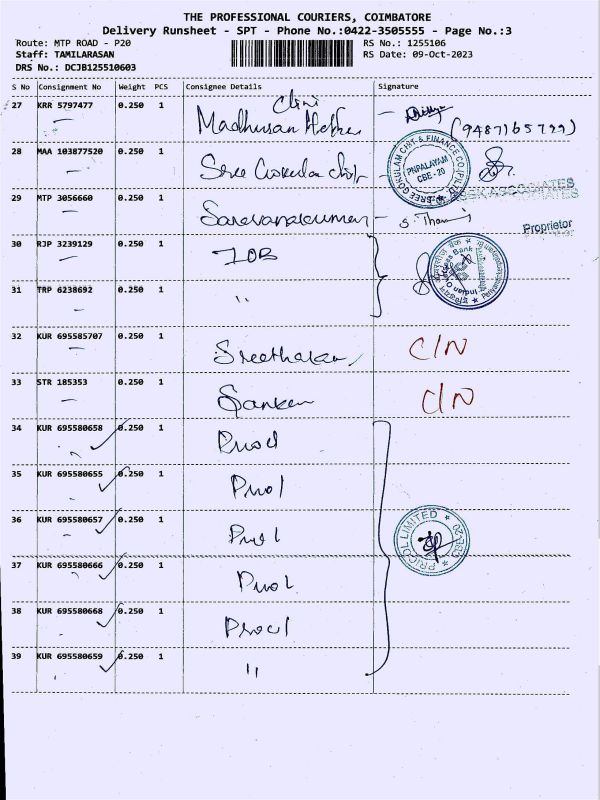 THE PROFESSIONAL COURIERS, COIMBATORE
Delivery Runsheet - SPT - Phone No.:0422-3505555 - Page No.:3
Route: MTP ROAD - P20 RS No.: 1255106
Staff: TAMILARASAN RS Date: 09-Oct-2023
DRS No.: DCJB125510603
S No Consignment No Weight PCS Consignee Details Signature
27 KRR 5797477 0.250 1
(9487165799)
28 MAA 103877520 0.250 1 Sree Gokulam Chit
SREE GOKULAM CHIT & FINANCE CO.(P)LTD
PNPALAYAM
CBE - 20
SSK ASSOCIATES
29 MTP 3056660 0.250 1 Saravanakumar - S. Tham
Proprietor
30 RJP 3239129 0.250 1 IOB
Indian Overseas Bank
31 TRP 6238692 0.250 1 "
32 KUR 695585707 0.250 1 Sreetharan C/N
33 STR 185353 0.250 1 Sanker C/N
34 KUR 695580658 0.250 1 Pricol
35 KUR 695580655 0.250 1 Pricol
36 KUR 695580657 0.250 1 Pricol
PRICOL LIMITED CBE-20
37 KUR 695580666 0.250 1 Pricol
38 KUR 695580668 0.250 1 Pricol
39 KUR 695580659 0.250 1 "